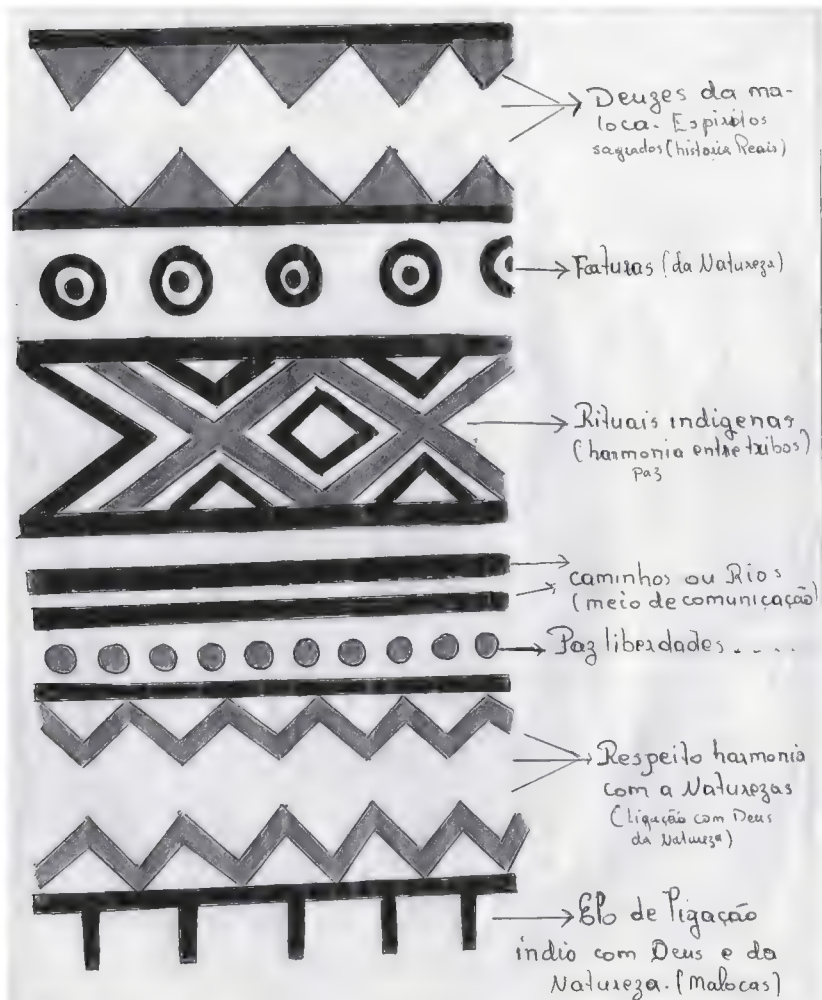 Deuzes da ma-
loca. Espiritos
sagrados (historia Reais)
Faturas (da Natureza)
Rituais indigenas
(harmonia entre tribos)
paz
caminhos ou Rios
(meio de comunicação)
Paz liberdades . . . .
Respeito harmonia
com a Naturezas
(Ligação com Deus
da Natureza)
Elo de ligação
índio com Deus e da
Natureza. (Malocas)